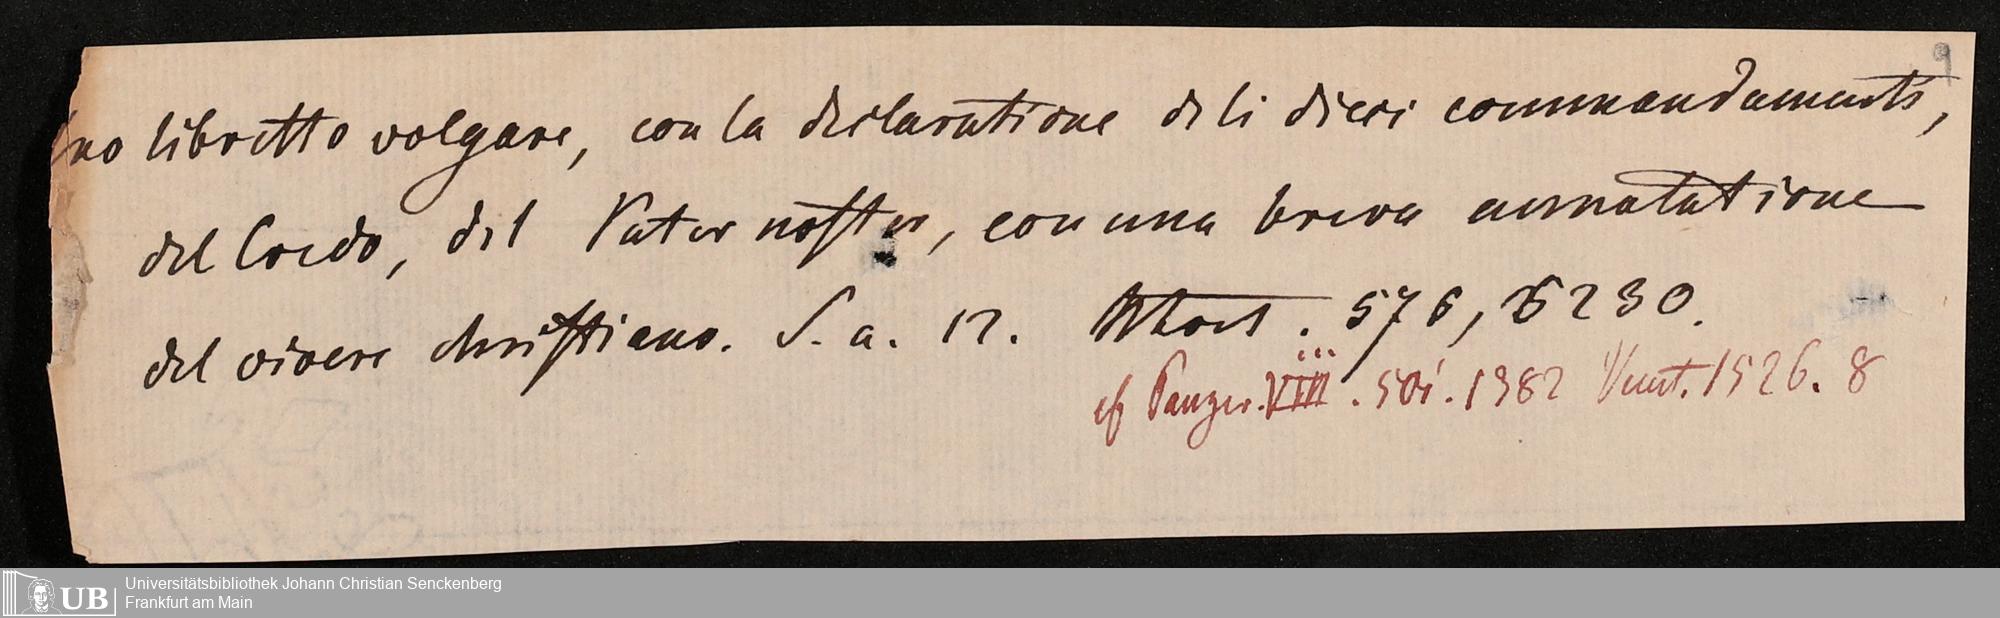 9
Uno libretto volgare, con la declaratione de li dieci commandamenti,
del Credo, del Pater noster, con una breva annotatione
del vivere christiano. S. a. 12. 576, 5230.
cf Panzer. VIII. 501. 1382 Venet. 1526. 8
UB
Universitätsbibliothek Johann Christian Senckenberg
Frankfurt am Main